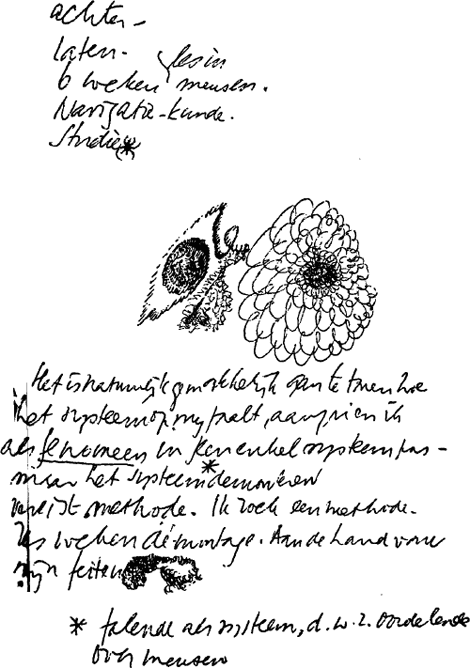 achter-
laten. les in
6 weken mensen.
Navigatie-kunde.
Studie *
Het is natuurlijk gemakkelijk aan te tonen hoe
het systeem op mij faalt, aangezien ik
als fenomeen in geen enkel systeem pas -
maar het systeem * demonteren
vereist methode. Ik zoek een methode.
Zes weken démontage. Aan de hand van
mijn feiten
* falende als systeem, d.w.z. oordelende
over mensen